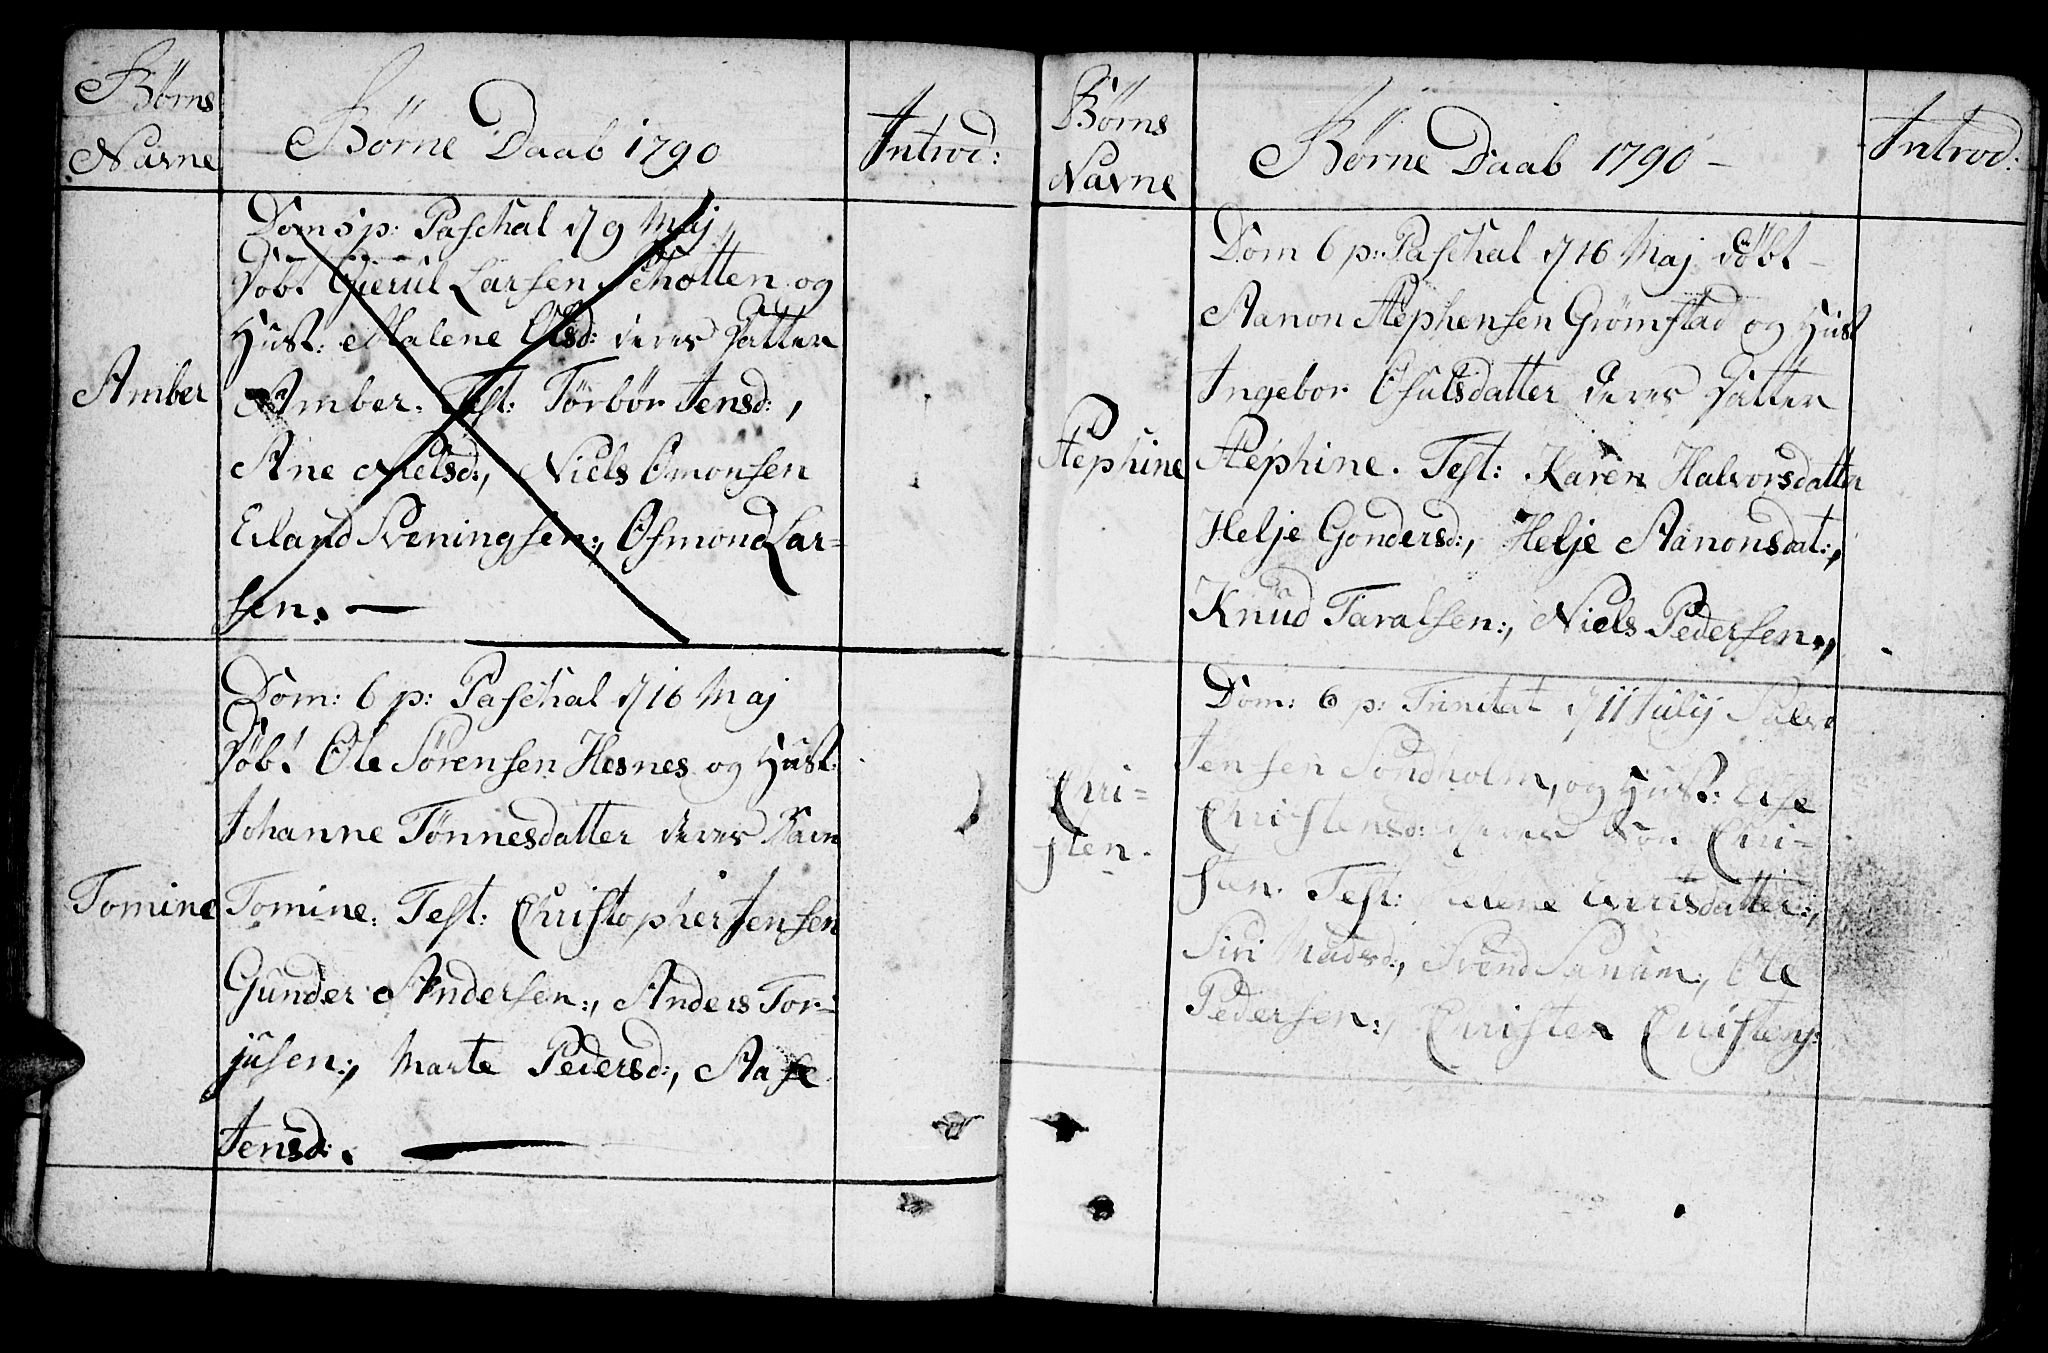 Børns
Navne
Børne Daab 1790
Introd:
Dom 5 p: Paschal d 9 Maj
Døbt Gierul Larsen Schotten og
Hust: Malene Olsd: deres Datter
Amber
Amber. Test: Torbør Jensd:,
Ane Nielsd:, Niels Omonsen
Erland Sveningsen:, Osmond Lar=
sen. —
Dom: 6 p: Paschal d 16 Maj
Døbt Ole Sørensen Hesnes og Hust:
Johanne Tønnesdatter deres Barn
Tomine
Tomine. Test: Christopher Jensen
Gunder Andersen:, Anders Tor=
jusen:, Marte Pedersd:, Aase
Jensd:. —
Børns
Navne
Børne Daab 1790 —
Introd:
Dom 6 p: Paschal d 16 Maj døbt —
Aanon Stephensen Grømstad og Hust
Ingebor Osulsdatter deres Datter
Stephine
Stephine. Test: Karen Halvorsdatter
Helje Gondersd:, Helje Aanonsdat:,
Knud Taralsen:, Niels Pedersen:,
Dom: 6 p: Trinitat d 11 Julij
Jensen Sondholm, og Hust: Else
Chri=
sten.
Christensd: deres Søn Chri=
sten. Test:
Siri Madsd:, Svend Sanum:, Ole
Pedersen:, Christen Christens: